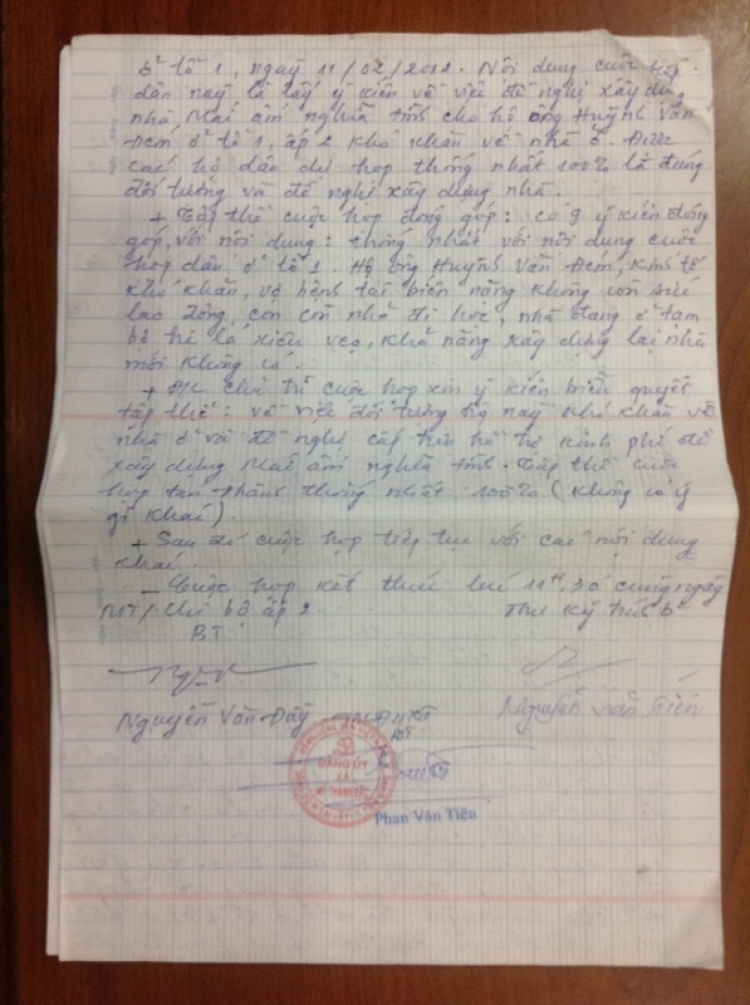 ở tổ 1, ngày 11/02/2012. Nội dung cuộc họp
dân này là lấy ý kiến về việc đề nghị xây dựng
nhà Mái ấm nghĩa tình cho hộ ông Huỳnh Văn
Đém ở tổ 1, ấp 2 khó khăn về nhà ở. Được
các hộ dân dự họp thống nhất 100% là đúng
đối tượng và đề nghị xây dựng nhà.
+ Tập thể cuộc họp đóng góp: có 9 ý kiến đóng
góp, với nội dung: thống nhất với nội dung cuộc
họp dân ở tổ 1. Hộ ông Huỳnh Văn Đém, kinh tế
khó khăn, vợ bệnh tai biến nặng không còn sức
lao động, con còn nhỏ đi học, nhà đang ở tạm
bợ trê lá xiêu vẹo, khả năng xây dựng lại nhà
mới không có.
+ ĐC chủ trì cuộc họp xin ý kiến biểu quyết
tập thể: về việc đối tượng hộ này khó khăn về
nhà ở và đề nghị cấp trên hỗ trợ kinh phí để
xây dựng Mái ấm nghĩa tình. Tập thể cuộc
họp tán thành thống nhất 100% (không có ý
gì khác).
+ Sau đó cuộc họp tiếp tục với các nội dung
khác.
- Cuộc họp kết thúc lúc 11H,30 cùng ngày
MT/. Chi bộ ấp 2. Thư ký
BT
Nguyễn Văn Dầy Nguyễn Văn Tiến
ĐẢNG ỦY
XÃ
Phan Văn Tiện